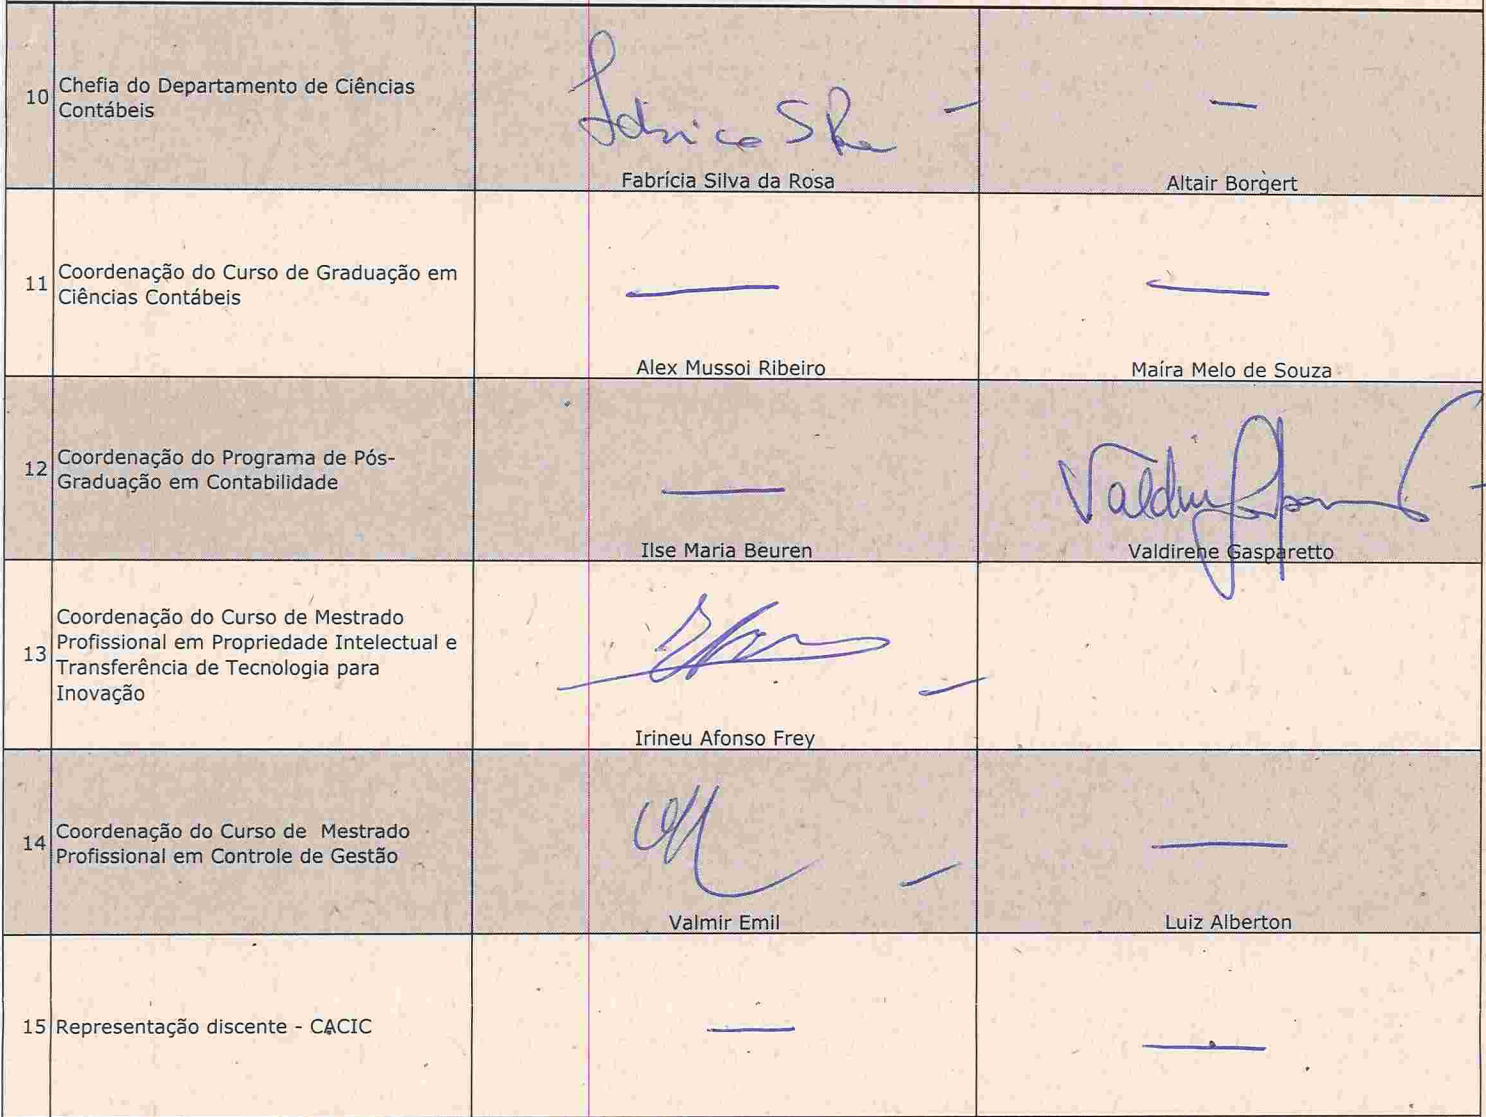 10
Chefia do Departamento de Ciências
Contábeis
Fabrícia Silva da Rosa
Altair Borgert
11
Coordenação do Curso de Graduação em
Ciências Contábeis
Alex Mussoi Ribeiro
Maíra Melo de Souza
12
Coordenação do Programa de Pós-
Graduação em Contabilidade
Ilse Maria Beuren
Valdirene Gasparetto
13
Coordenação do Curso de Mestrado
Profissional em Propriedade Intelectual e
Transferência de Tecnologia para
Inovação
Irineu Afonso Frey
14
Coordenação do Curso de  Mestrado
Profissional em Controle de Gestão
Valmir Emil
Luiz Alberton
15
Representação discente - CACIC